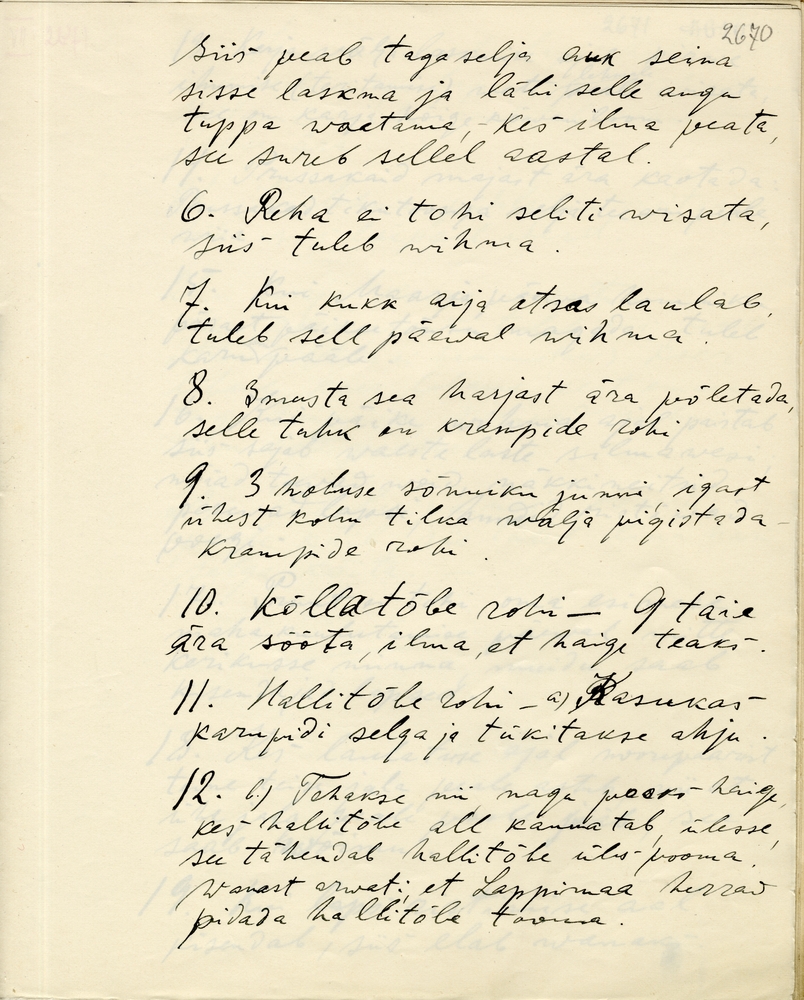 2670
siis peab tagaselja auk seina
sisse laskma ja läbi selle augu
tuppa waatama, - kes ilma peata,
su sureb sellel aastal.
6. Reha ei tohi seliti wisata,
siis tuleb wihma.
7. Kui kukk aija otsas laulab,
tuleb sell päewal wihma.
8. 3 musta sea harjast ära põletada,
selle tuhk on krampide rohi
9. 3 hobuse sõnniku junni, igast
ühest kolm tilka wälja pigistada -
krampide rohi.
10. Kõllatõbe rohi — 9 täie
ära sööta, ilma, et haige teaks.
11. Hallitõbe rohi - a) Kasukas
karupidi selga ja tükitakse ahju.
12. b.) Tehakse nii, nagu pooks haige,
kes hallitõbe all kannatab, ülesse,
su tähendab hallitõbe üles pooma.
Wanast arwati, et Lappimaa herrad
pidada hallitõbe tooma.